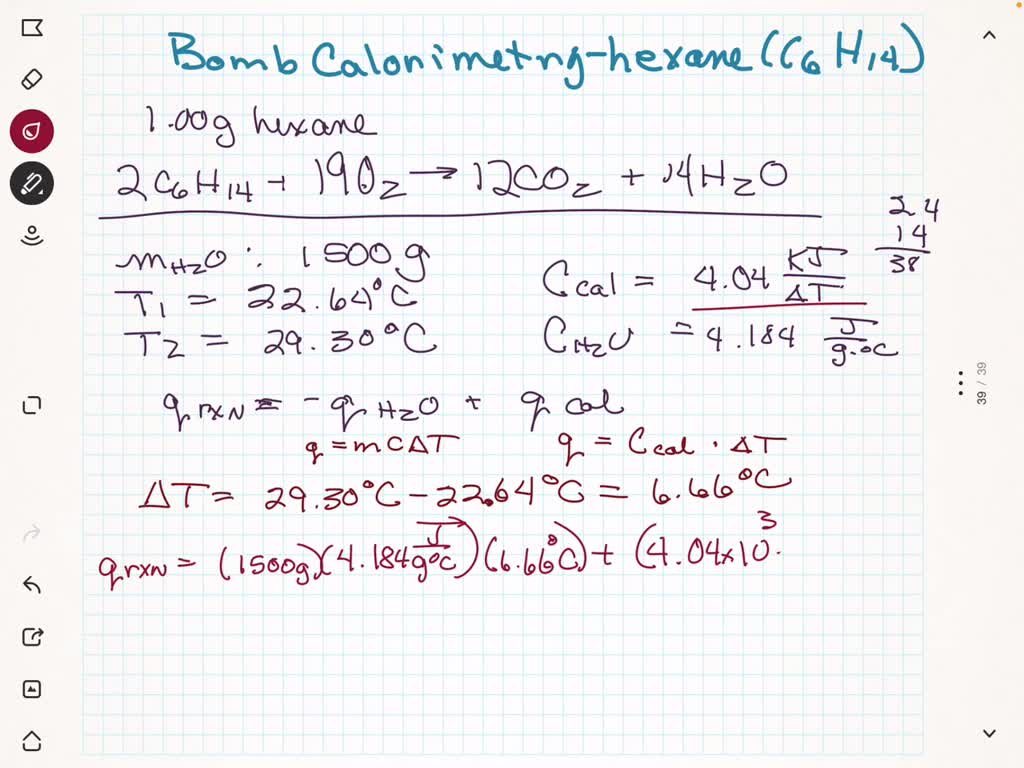 Bomb Calorimetry-hexane (C6H14)
1.00g hexane
2C6H14 + 19O2 → 12CO2 + 14H2O
24
14
38
mH2O : 1500g
T1 = 22.64°C
T2 = 29.30°C
Ccal = 4.04 KJ/ΔT
CH2O = 4.184 J/g·°C
39 / 39
qrxN = -qH2O + qcal
q = mCΔT q = Ccal · ΔT
ΔT = 29.30°C - 22.64°C = 6.66°C
qrxN = (1500g)(4.184 J/g°C)(6.66°C) + (4.04x10^3